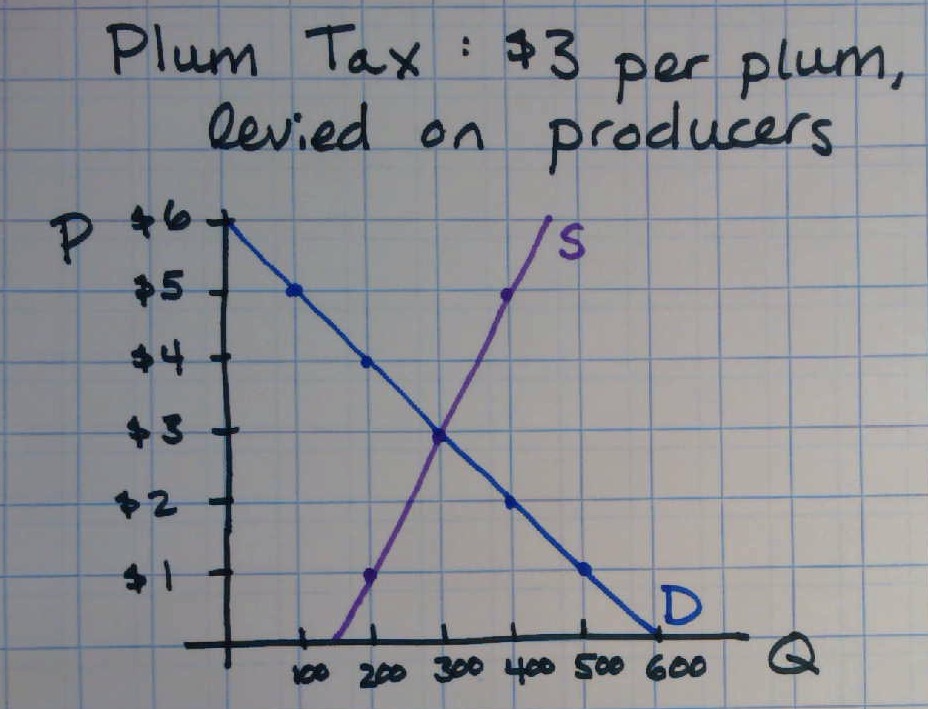 Plum Tax : $3 per plum,
levied on producers
P
$6
S
$5
$4
$3
$2
$1
D
100 200 300 400 500 600
Q